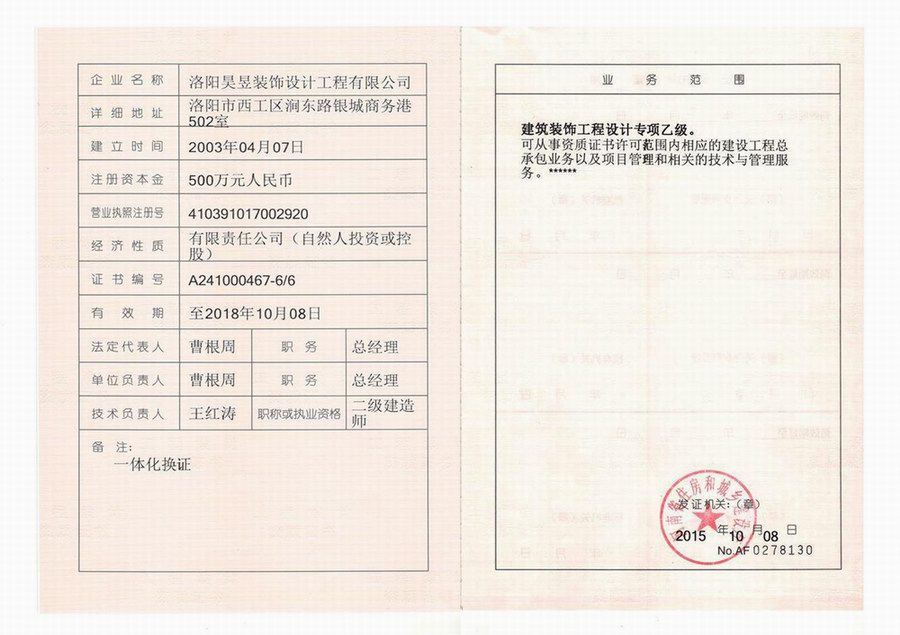 企业名称 洛阳昊昱装饰设计工程有限公司
详细地址 洛阳市西工区涧东路银城商务港
502室
建立时间 2003年04月07日
注册资本金 500万元人民币
营业执照注册号 410391017002920
经济性质 有限责任公司（自然人投资或控
股）
证书编号 A241000467-6/6
有效期 至2018年10月08日
法定代表人 曹根周 职务 总经理
单位负责人 曹根周 职务 总经理
技术负责人 王红涛 职称或执业资格 二级建造
师
备注：
一体化换证
业务范围
建筑装饰工程设计专项乙级。
可从事资质证书许可范围内相应的建设工程总
承包业务以及项目管理和相关的技术与管理服
务。******
发证机关：（章）
2015年10月08日
No.AF0278130